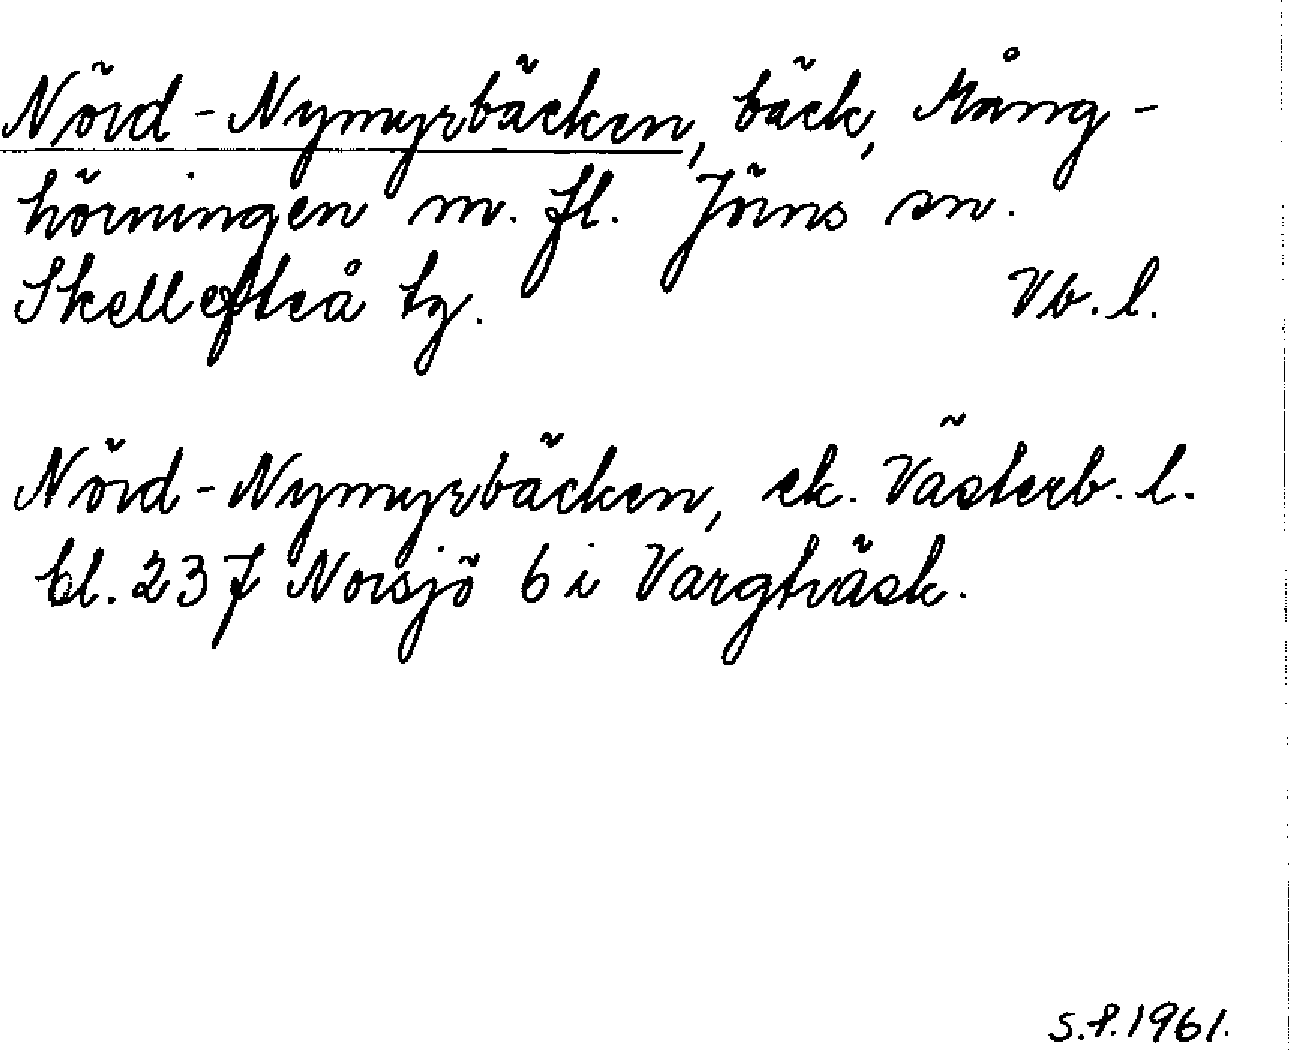 Nörd-Nymyrbäcken, bäck, Mång-
hörningen m. fl. Jörns sn.
Skellefteå tg. Vb. l.
Nörd-Nymyrbäcken, ek. Västerb. l.
bl. 237 Norsjö 6 i Vargträsk.
S.P. 1961.